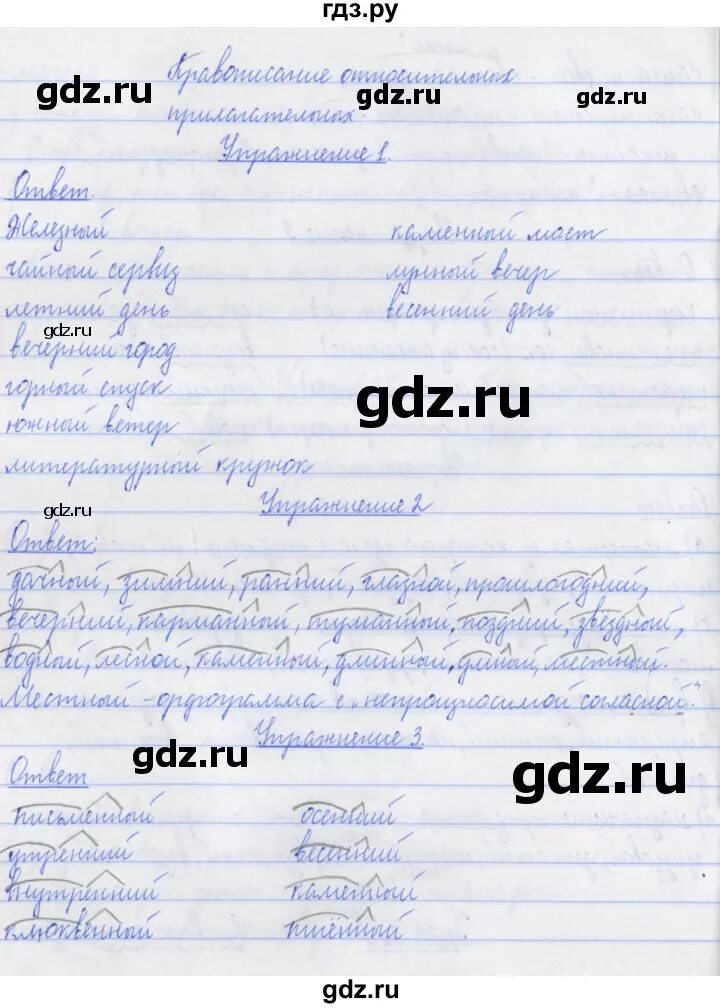 гдз.ру
Правописание относительных
gdz.ru gdz.ru gdz.ru
прилагательных.
Упражнение 1.
Ответ.
Железный каменный мост
чайный сервиз лунный вечер
летний день весенний день
gdz.ru
вечерний город
горный спуск
gdz.ru
южный ветер
литературный кружок
Упражнение 2
gdz.ru gdz.ru
Ответ:
дачный, зимний, ранний, глазной, прошлогодний,
вечерний, карманный, туманный, поздний, звёздный,
водный, лесной, каменный, длинный, умный, местный.
Местный - орфограмма с "непроизносимой согласной."
Упражнение 3.
gdz.ru gdz.ru
Ответ.
письменный осенний
утренний весенний
внутренний каменный
клюквенный пшённый
gdz.ru